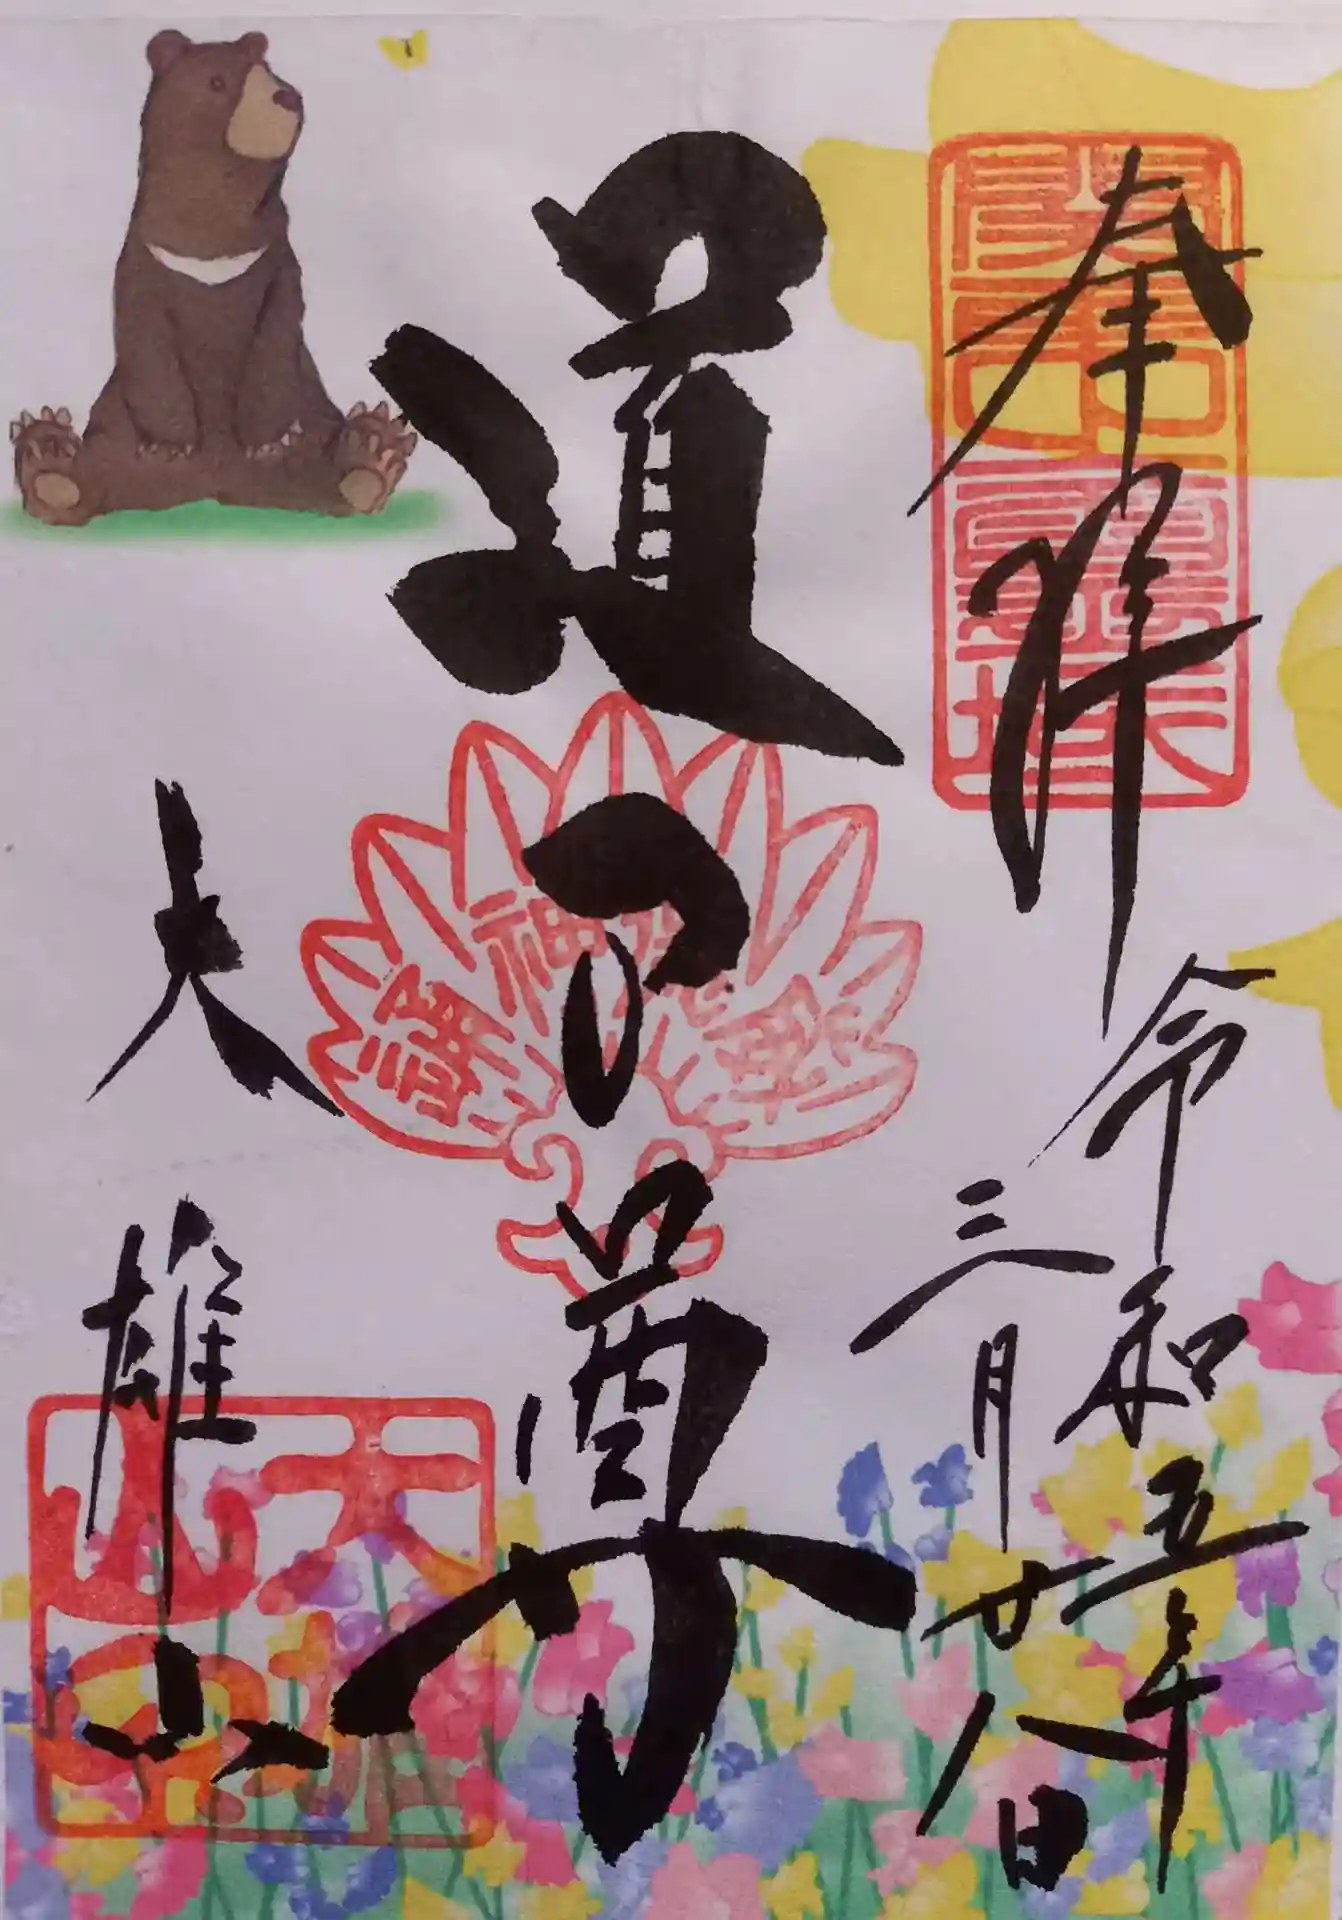 奉拝
令和五年
三月廿八日
道了尊
大雄山
大雄山印